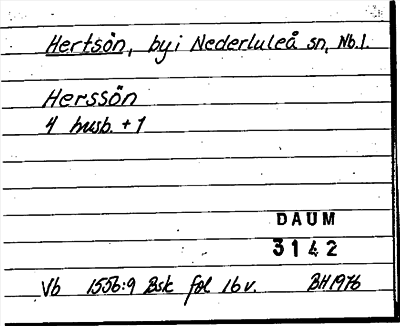 Hertsön, by i Nederluleå sn, Nb.l.
Herssön
4 husb. + 1
DAUM
3142
Vb 1556:9 Bsk fol 16 v. BH 1976